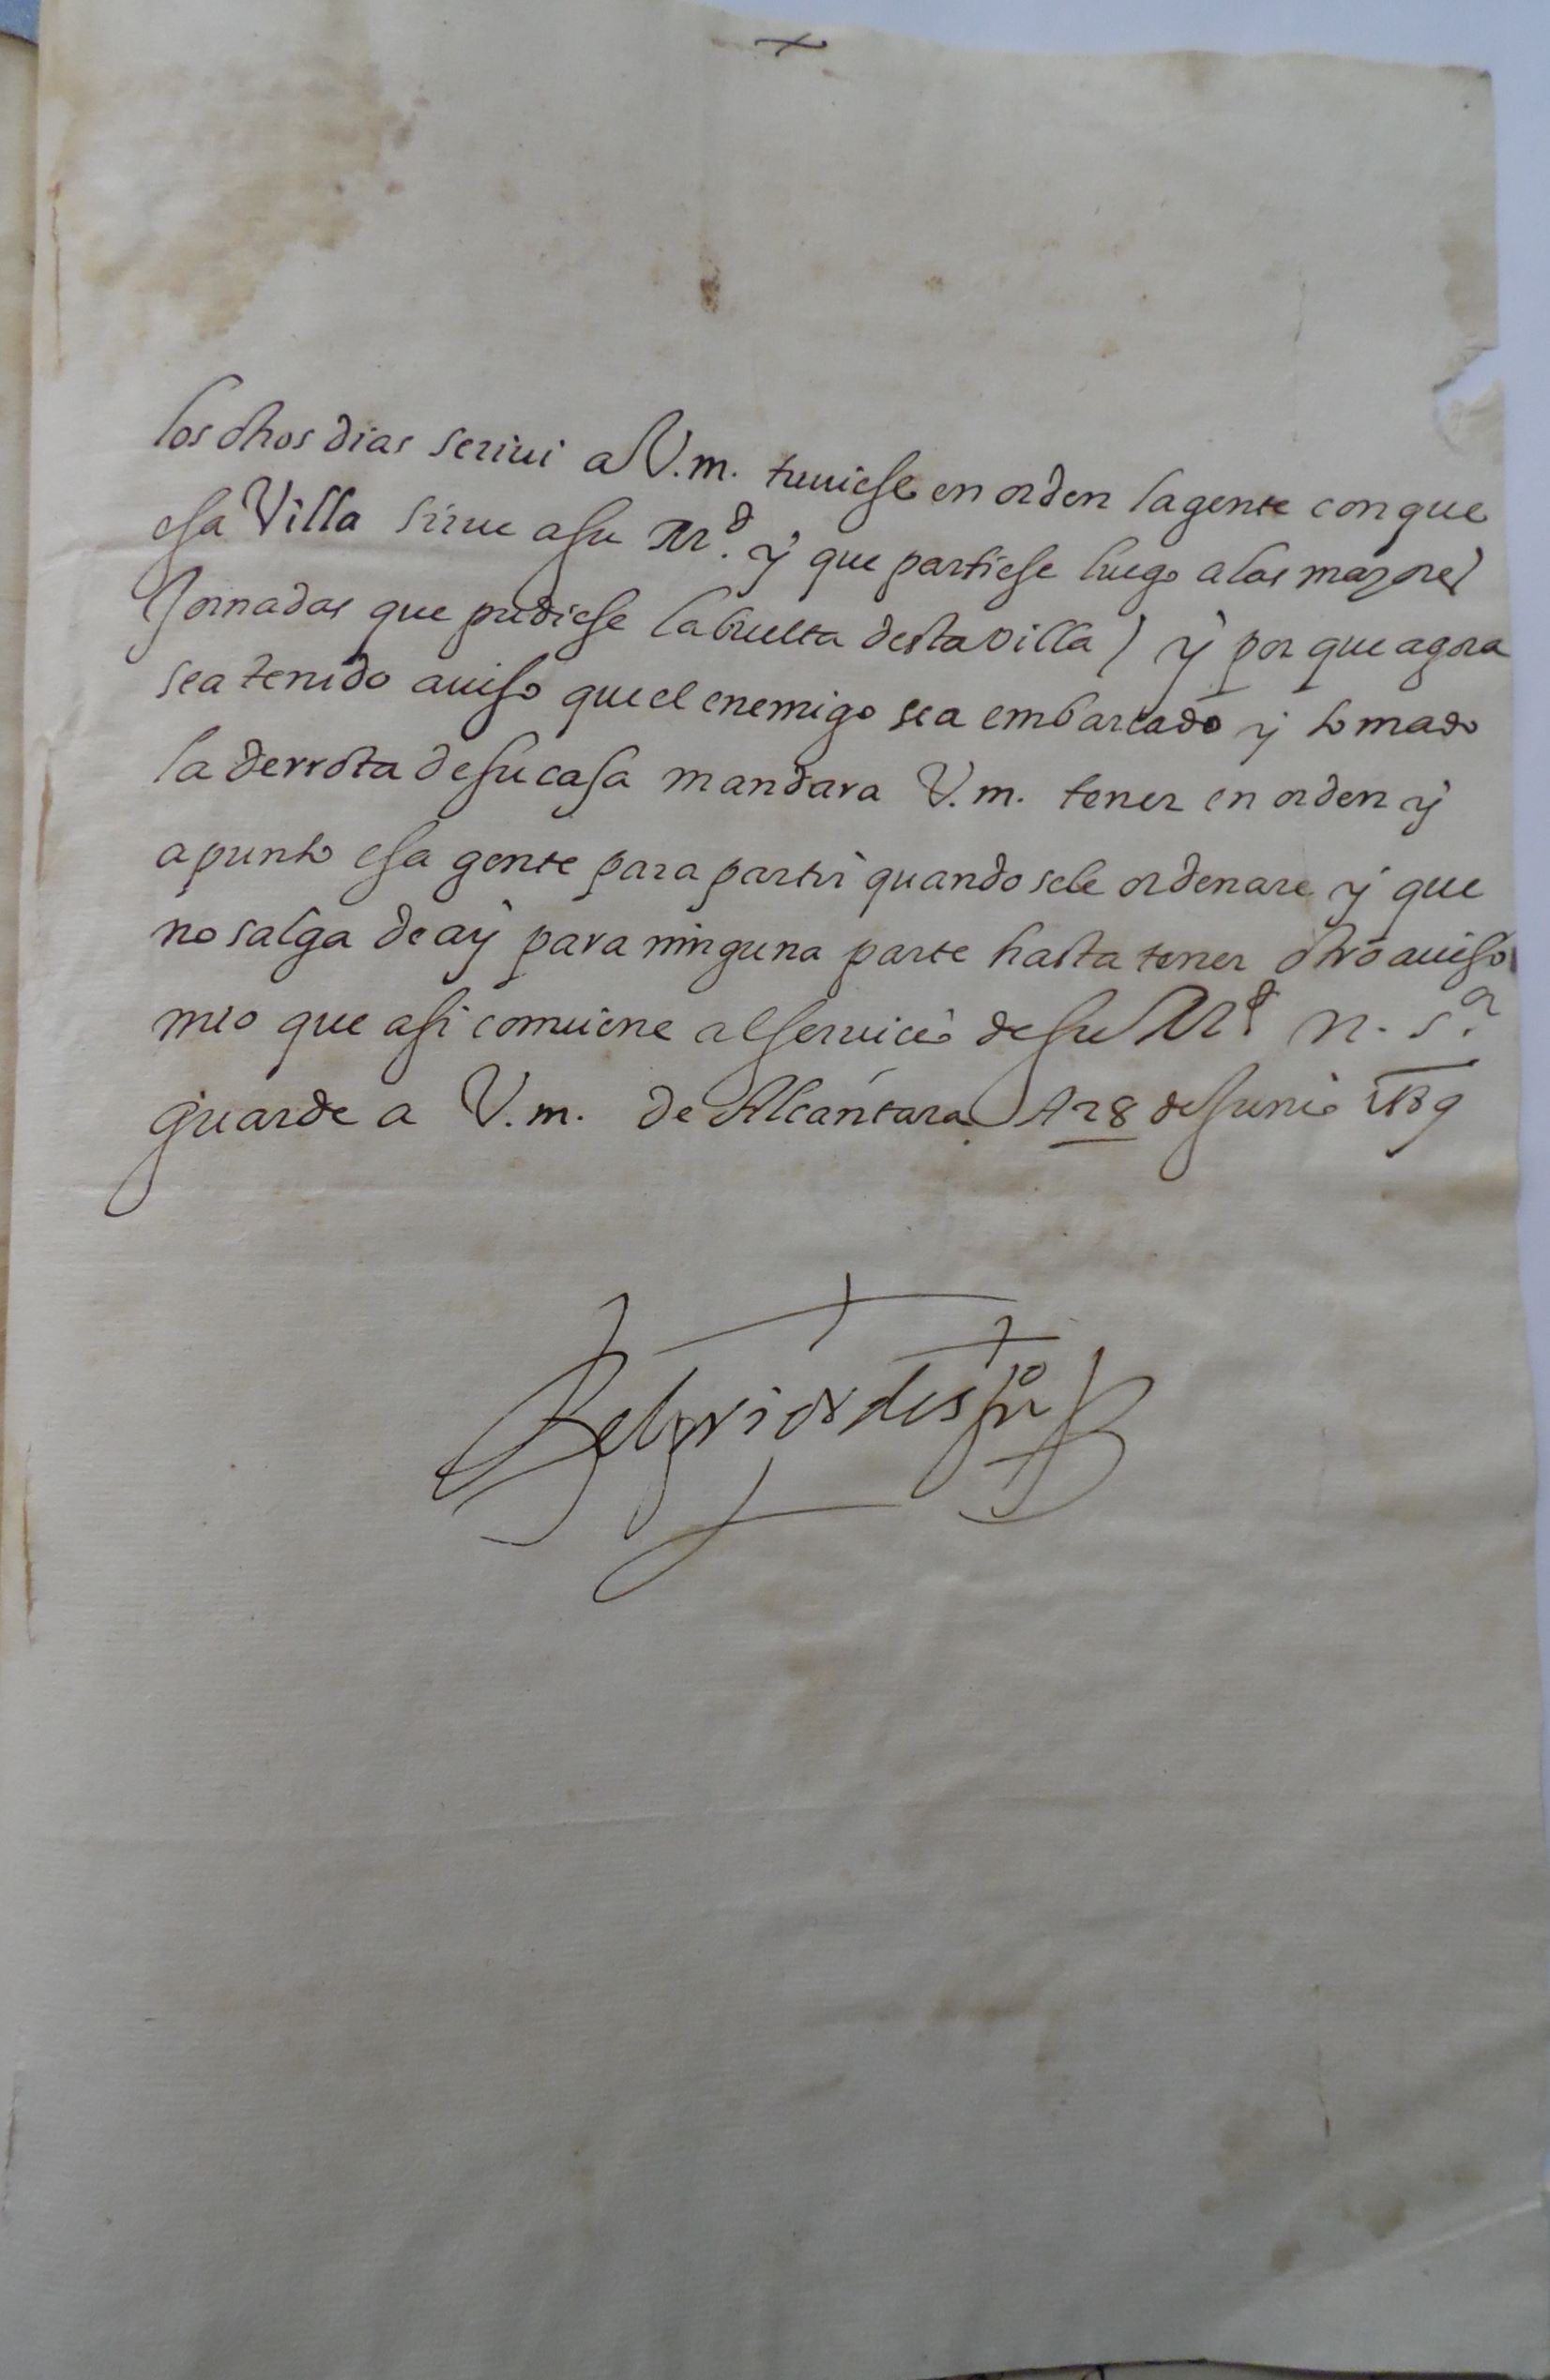 +
los otros dias scriui a V.m. tuuiese en orden la gente con que
esa Villa sirue a su M.d y que partiese luego a las mayores
Jornadas que pudiese la buelta desta villa / y por que agora
sea tenido auiso que el enemigo sea embarcado y tomado
la derrota de su casa mandara V.m. tener en orden y
a punto esa gente para partir quando se le ordenare y que
no salga de ay para ninguna parte hasta tener otro auiso
mio que asi comuiene al seruicio de su M.d n. s.r
guarde a V.m. de Alcantara A 28 de Junio 1589
El prior